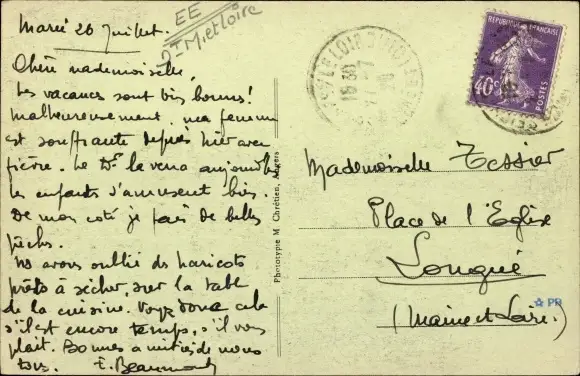 EE
2I M. et Loire
Mardi 26 Juillet.
Chère mademoiselle,
Les vacances sont très bonnes!
malheureusement, ma femme
est souffrante depuis hier avec
fièvre. Le Dr la verra aujourd'hui
les enfants s'amusent bien.
De mon coté je fais de belles
pêches.
Ns avons oublié des haricots
prêts à sécher, sur la table
de la cuisine. Voyez donc cela
s'il est encore temps, s'il vous
plait. Bonnes amitiés de nous
tous. E. Beaumont
Phototypie M. Chrétien, Angers
REPUBLIQUE FRANÇAISE
40c
POSTES
16 30
27-7
Mademoiselle Tessier
Place de l'Eglise
Longué
(Maine et Loire.)
PR